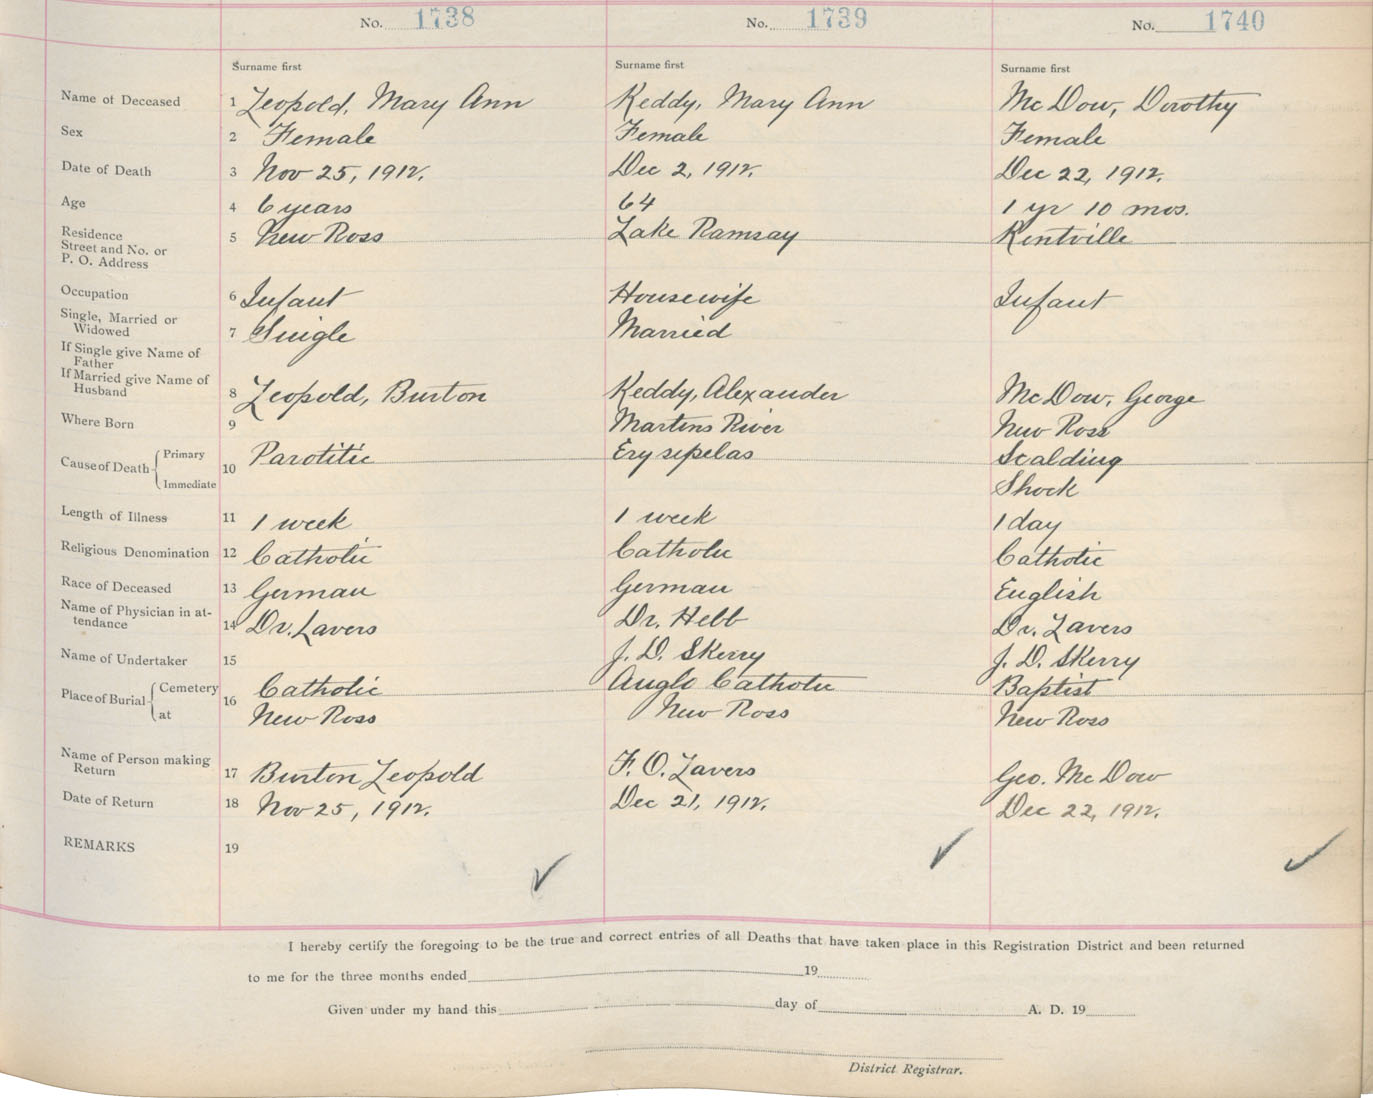 No. 1738 No. 1739 No. 1740
Surname first Surname first Surname first
Name of Deceased 1 Leopold, Mary Ann Keddy, Mary Ann McDow, Dorothy
Sex 2 Female Female Female
Date of Death 3 Nov 25, 1912. Dec 2, 1912. Dec 22, 1912.
Age 4 6 years 64 1 yr 10 mos.
Residence
Street and No. or 5 New Ross Lake Ramsay Kentville
P. O. Address
Occupation 6 Infant Housewife Infant
Single, Married or
Widowed 7 Single Married
If Single give Name of
Father
If Married give Name of
Husband 8 Leopold, Burton Keddy, Alexander McDow, George
Where Born 9 Martins River New Ross
Cause of Death Primary 10 Parotitic Erysipelas Scalding
Immediate Shock
Length of Illness 11 1 week 1 week 1 day
Religious Denomination 12 Catholic Catholic Catholic
Race of Deceased 13 German German English
Name of Physician in at-
tendance 14 Dr. Lavers Dr. Hebb Dr. Lavers
Name of Undertaker 15 J. D. Skerry J. D. Skerry
Place of Burial Cemetery 16 Catholic Anglo Catholic Baptist
at New Ross New Ross New Ross
Name of Person making
Return 17 Burton Leopold F. O. Lavers Geo. McDow
Date of Return 18 Nov 25, 1912. Dec 21, 1912. Dec 22, 1912.
REMARKS 19
I hereby certify the foregoing to be the true and correct entries of all Deaths that have taken place in this Registration District and been returned
to me for the three months ended 19
Given under my hand this day of A. D. 19
District Registrar.